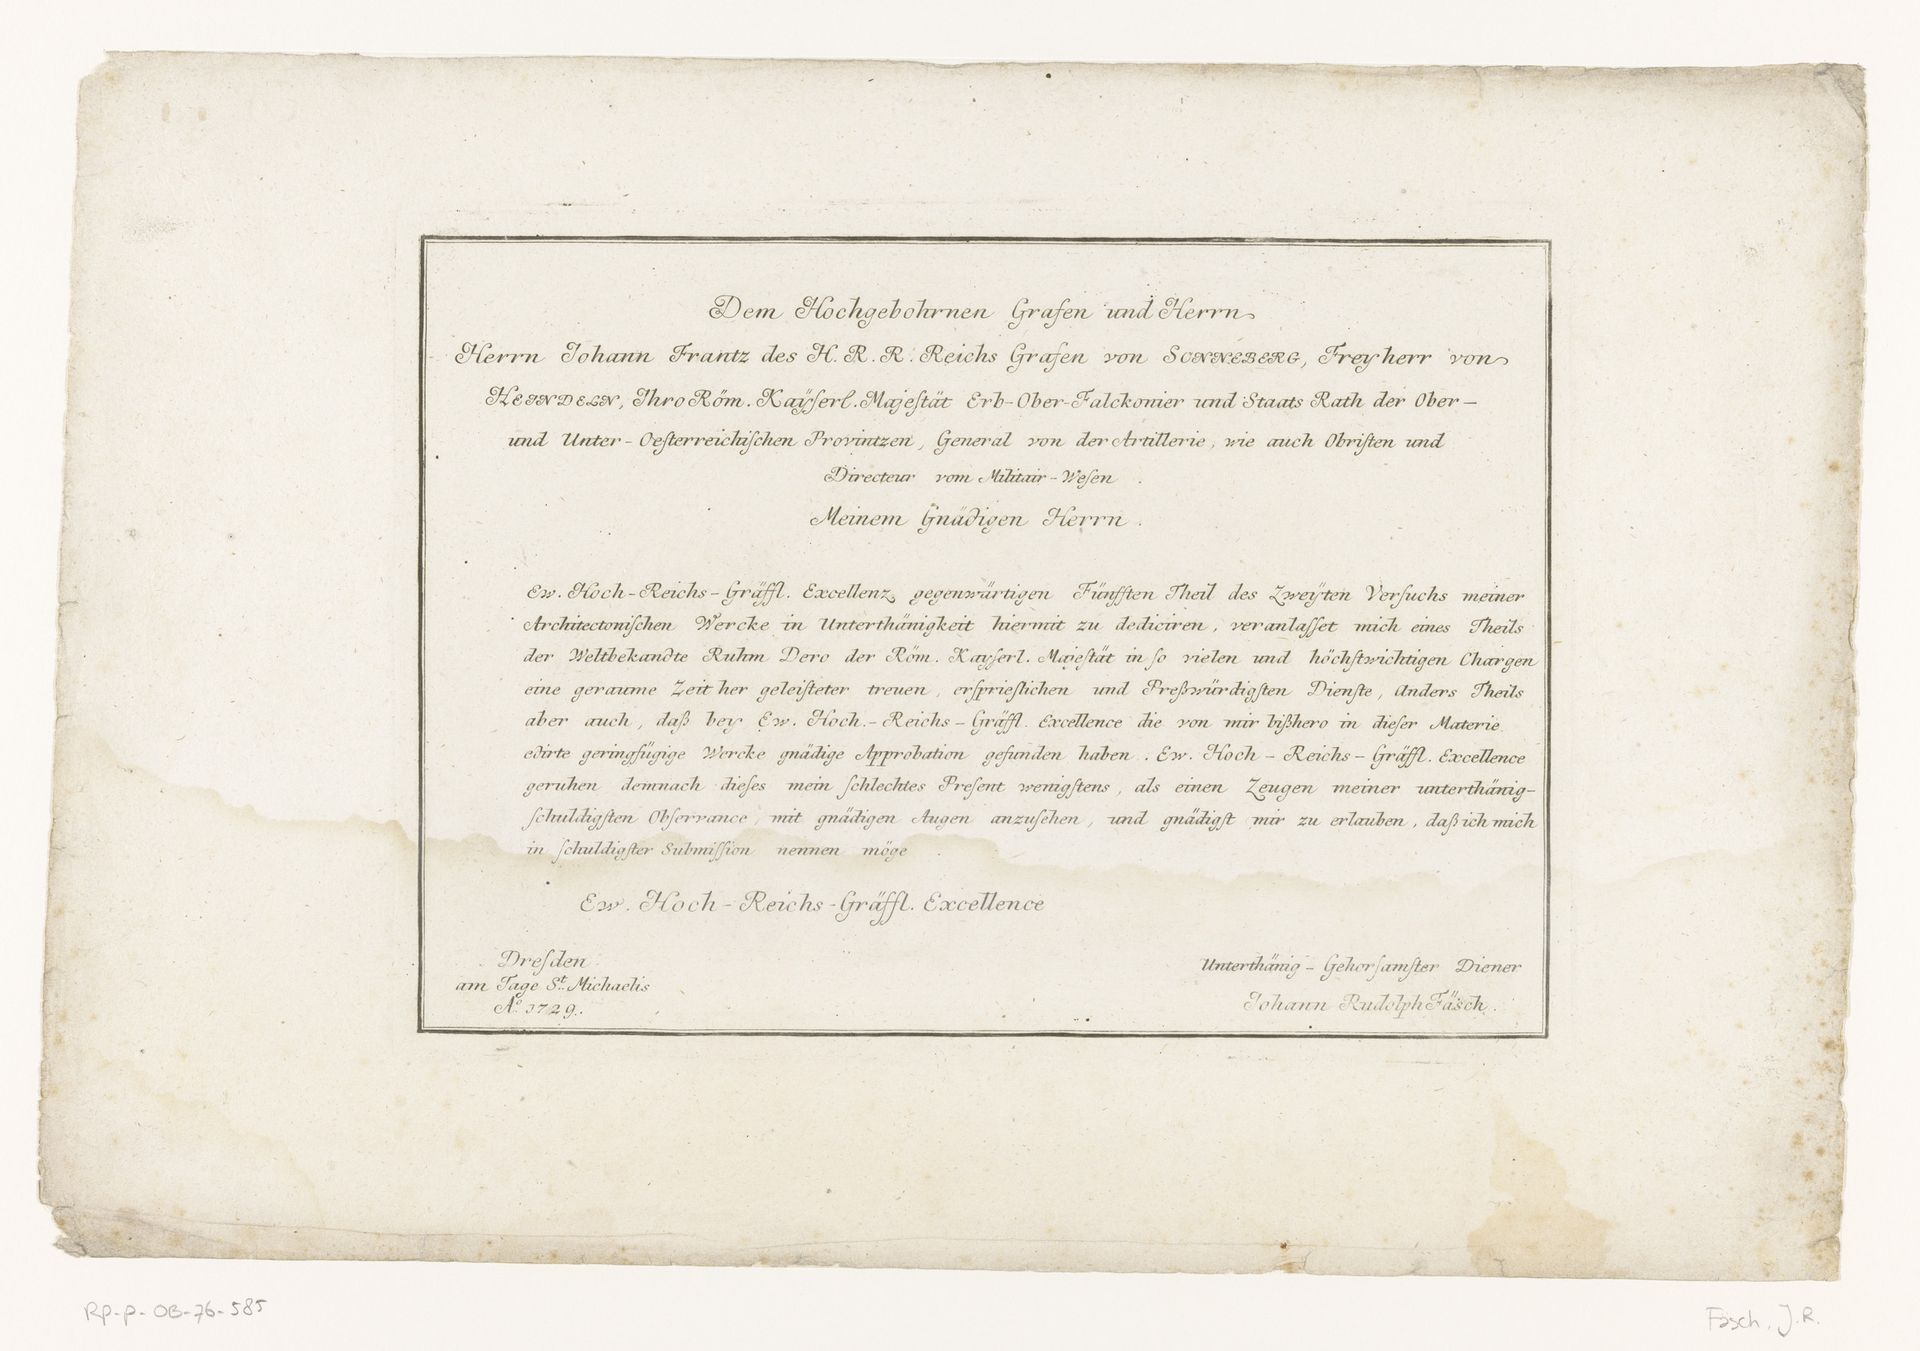 Dem Hochgebohrnen Grafen und Herrn
Herrn Johann Frantz des H. R. R. Reichs Grafen von SONNEBERG, Freyherr von
HEINDELN, Ihro Röm. Kaÿſerl. Majeſtät Erb-Ober-Falckonier und Staats Rath der Ober-
und Unter-Oeſterreichiſchen Provintzen, General von der Artillerie, wie auch Obriſten und
Directeur vom Militair-Weſen.
Meinem Gnädigen Herrn.
Ew. Hoch-Reichs-Gräffl. Excellenz gegenwärtigen Fünfften Theil des Zweÿten Verſuchs meiner
Architectoniſchen Wercke in Unterthänigkeit hiermit zu dediciren, veranlaſſet mich eines Theils
der Weltbekandte Ruhm Dero der Röm. Kayſerl. Majeſtät in ſo vielen und höchſtwichtigen Chargen
eine geraume Zeit her geleiſteter treuen, erſprieſlichen und Preßwürdigſten Dienſte, Anders Theils
aber auch, daß bey Ew. Hoch.-Reichs-Gräffl. Excellence die von mir bißhero in dieſer Materie
edirte geringfügige Wercke gnädige Approbation gefunden haben. Ew. Hoch-Reichs-Gräffl. Excellence
geruhen demnach dieſes mein ſchlechtes Preſent wenigſtens, als einen Zeugen meiner unterthänig-
ſchuldigſten Obſervance, mit gnädigen Augen anzuſehen, und gnädigſt mir zu erlauben, daß ich mich
in ſchuldigſter Submiſſion nennen möge
Ew. Hoch-Reichs-Gräffl. Excellence
Dreſden
am Tage St. Michaelis
Ao. 1729.
Unterthänig-Gehorſamſter Diener
Johann Rudolph Fäsch.
RP-P-OB-76-585
Fäsch, J.R.